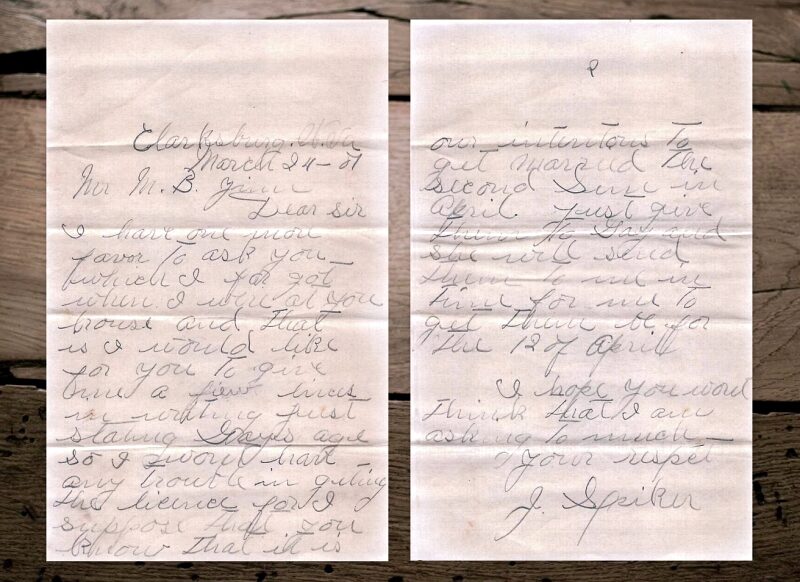 Clarksburg. W.Va
March 24-07
Mr M. B.
Dear sir
I have one more
favor to ask you
which I for got
when I were at you
house and that
is I would like
for you to give
me a few lines
in writing just
stating Gays age
so I wont have
any trouble in geting
the licence for I
suppose that you
know that it is
2
our intentons to
get maried the
second Sun in
April. just give
them to Gay and
she will send
them to me in
time for me to
get them be for
the 12 of April
I hope you wond
think that I am
asking to much
your respet
J. Spiker